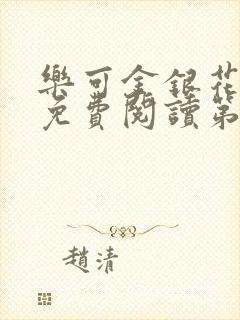 樂可金銀花
免費閱讀第
趙清